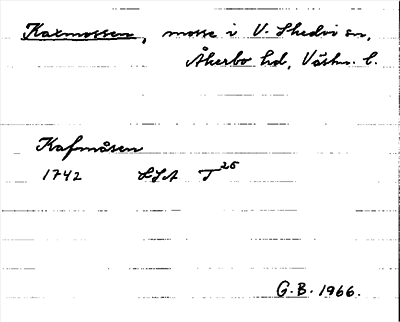 Kaxmossen, mosse i V. Skedvi sn,
Åkerbo hd, Västm. l.
Kafmåsen
1742 LSA T 25
G.B. 1966.